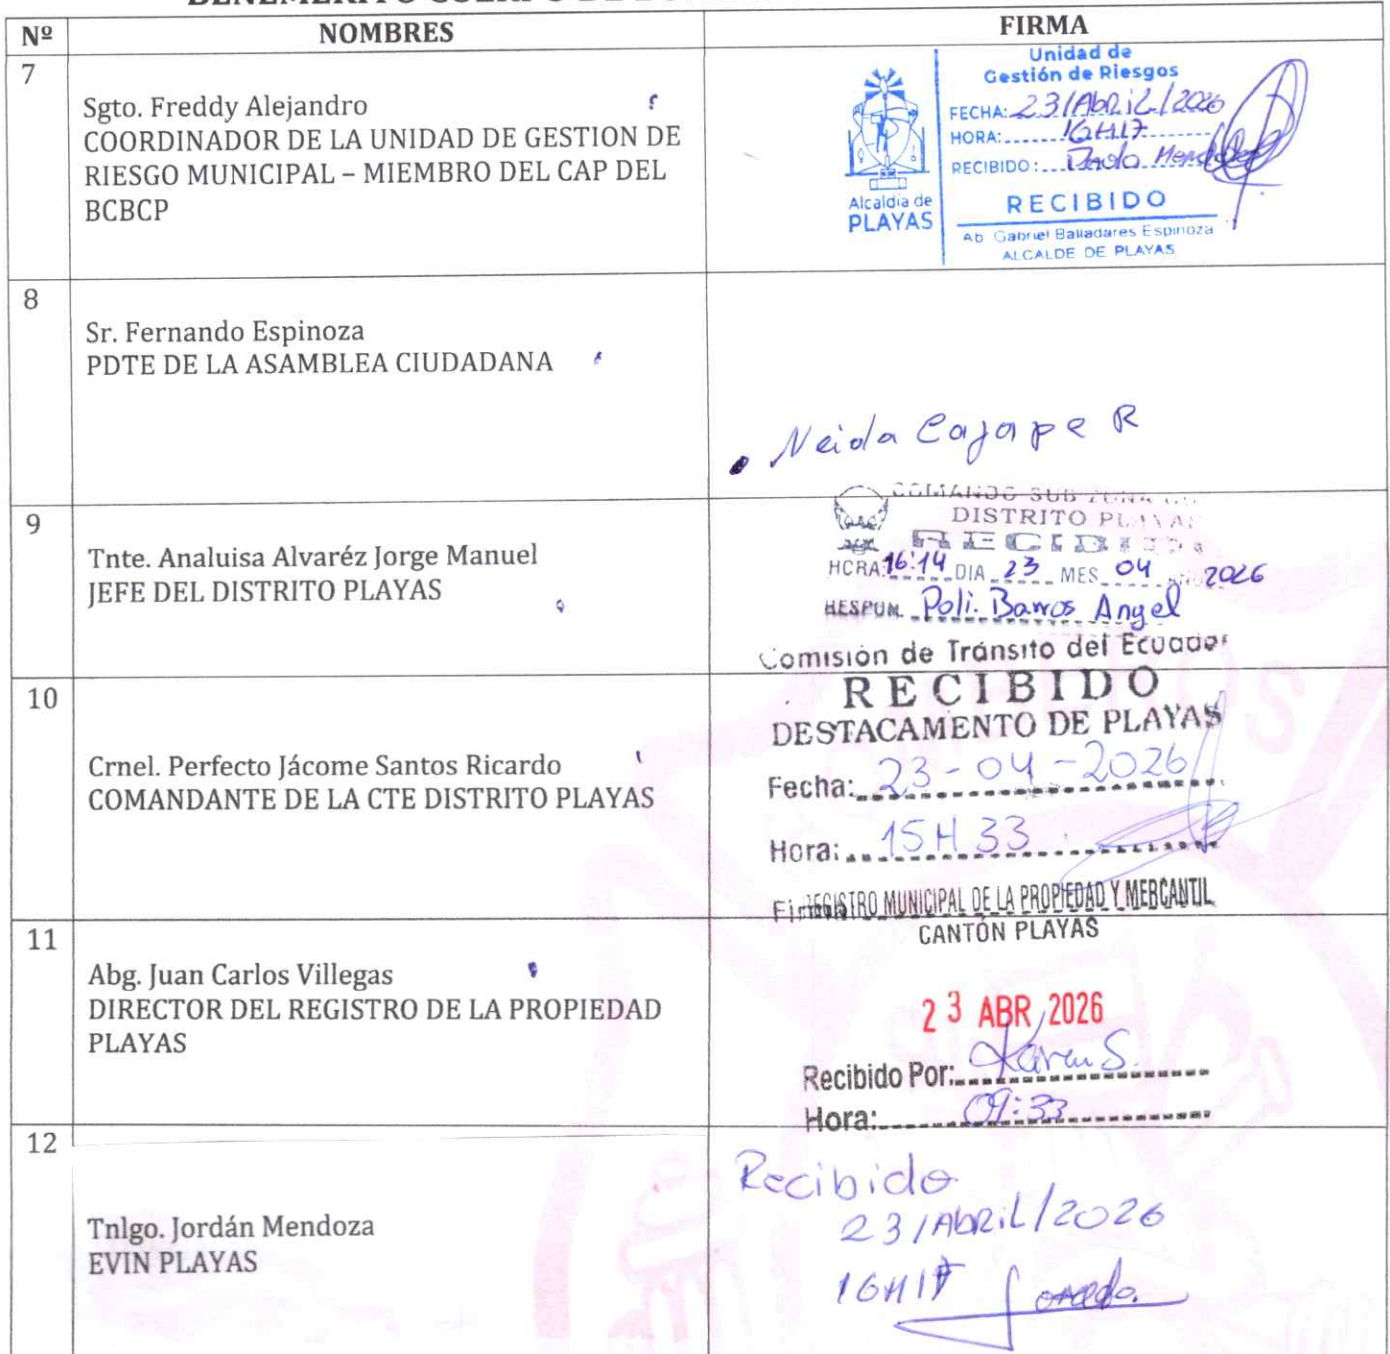 Nº NOMBRES FIRMA
7
Sgto. Freddy Alejandro
COORDINADOR DE LA UNIDAD DE GESTION DE
RIESGO MUNICIPAL – MIEMBRO DEL CAP DEL
BCBCP
Unidad de
Gestión de Riesgos
FECHA: 23/AbRiL/2026
HORA: 16H17
RECIBIDO:
RECIBIDO
Ab. Gabriel Balladares Espinoza
ALCALDE DE PLAYAS
Alcaldía de
PLAYAS
8
Sr. Fernando Espinoza
PDTE DE LA ASAMBLEA CIUDADANA
Neida Cajape R
9
Tnte. Analuisa Alvaréz Jorge Manuel
JEFE DEL DISTRITO PLAYAS
COMANDO SUB ZONA
DISTRITO PLAYAS
RECIBIDO
HORA 16:14 DIA 23 MES 04 AÑO 2026
RESPON. Poli. Barros Angel
10
Crnel. Perfecto Jácome Santos Ricardo
COMANDANTE DE LA CTE DISTRITO PLAYAS
Comisión de Tránsito del Ecuador
RECIBIDO
DESTACAMENTO DE PLAYAS
Fecha: 23-04-2026
Hora: 15H33
11
Abg. Juan Carlos Villegas
DIRECTOR DEL REGISTRO DE LA PROPIEDAD
PLAYAS
REGISTRO MUNICIPAL DE LA PROPIEDAD Y MERCANTIL
CANTÓN PLAYAS
23 ABR 2026
Recibido Por: Karen S.
Hora: 09:33
12
Tnlgo. Jordán Mendoza
EVIN PLAYAS
Recibido
23/AbRiL/2026
16H17